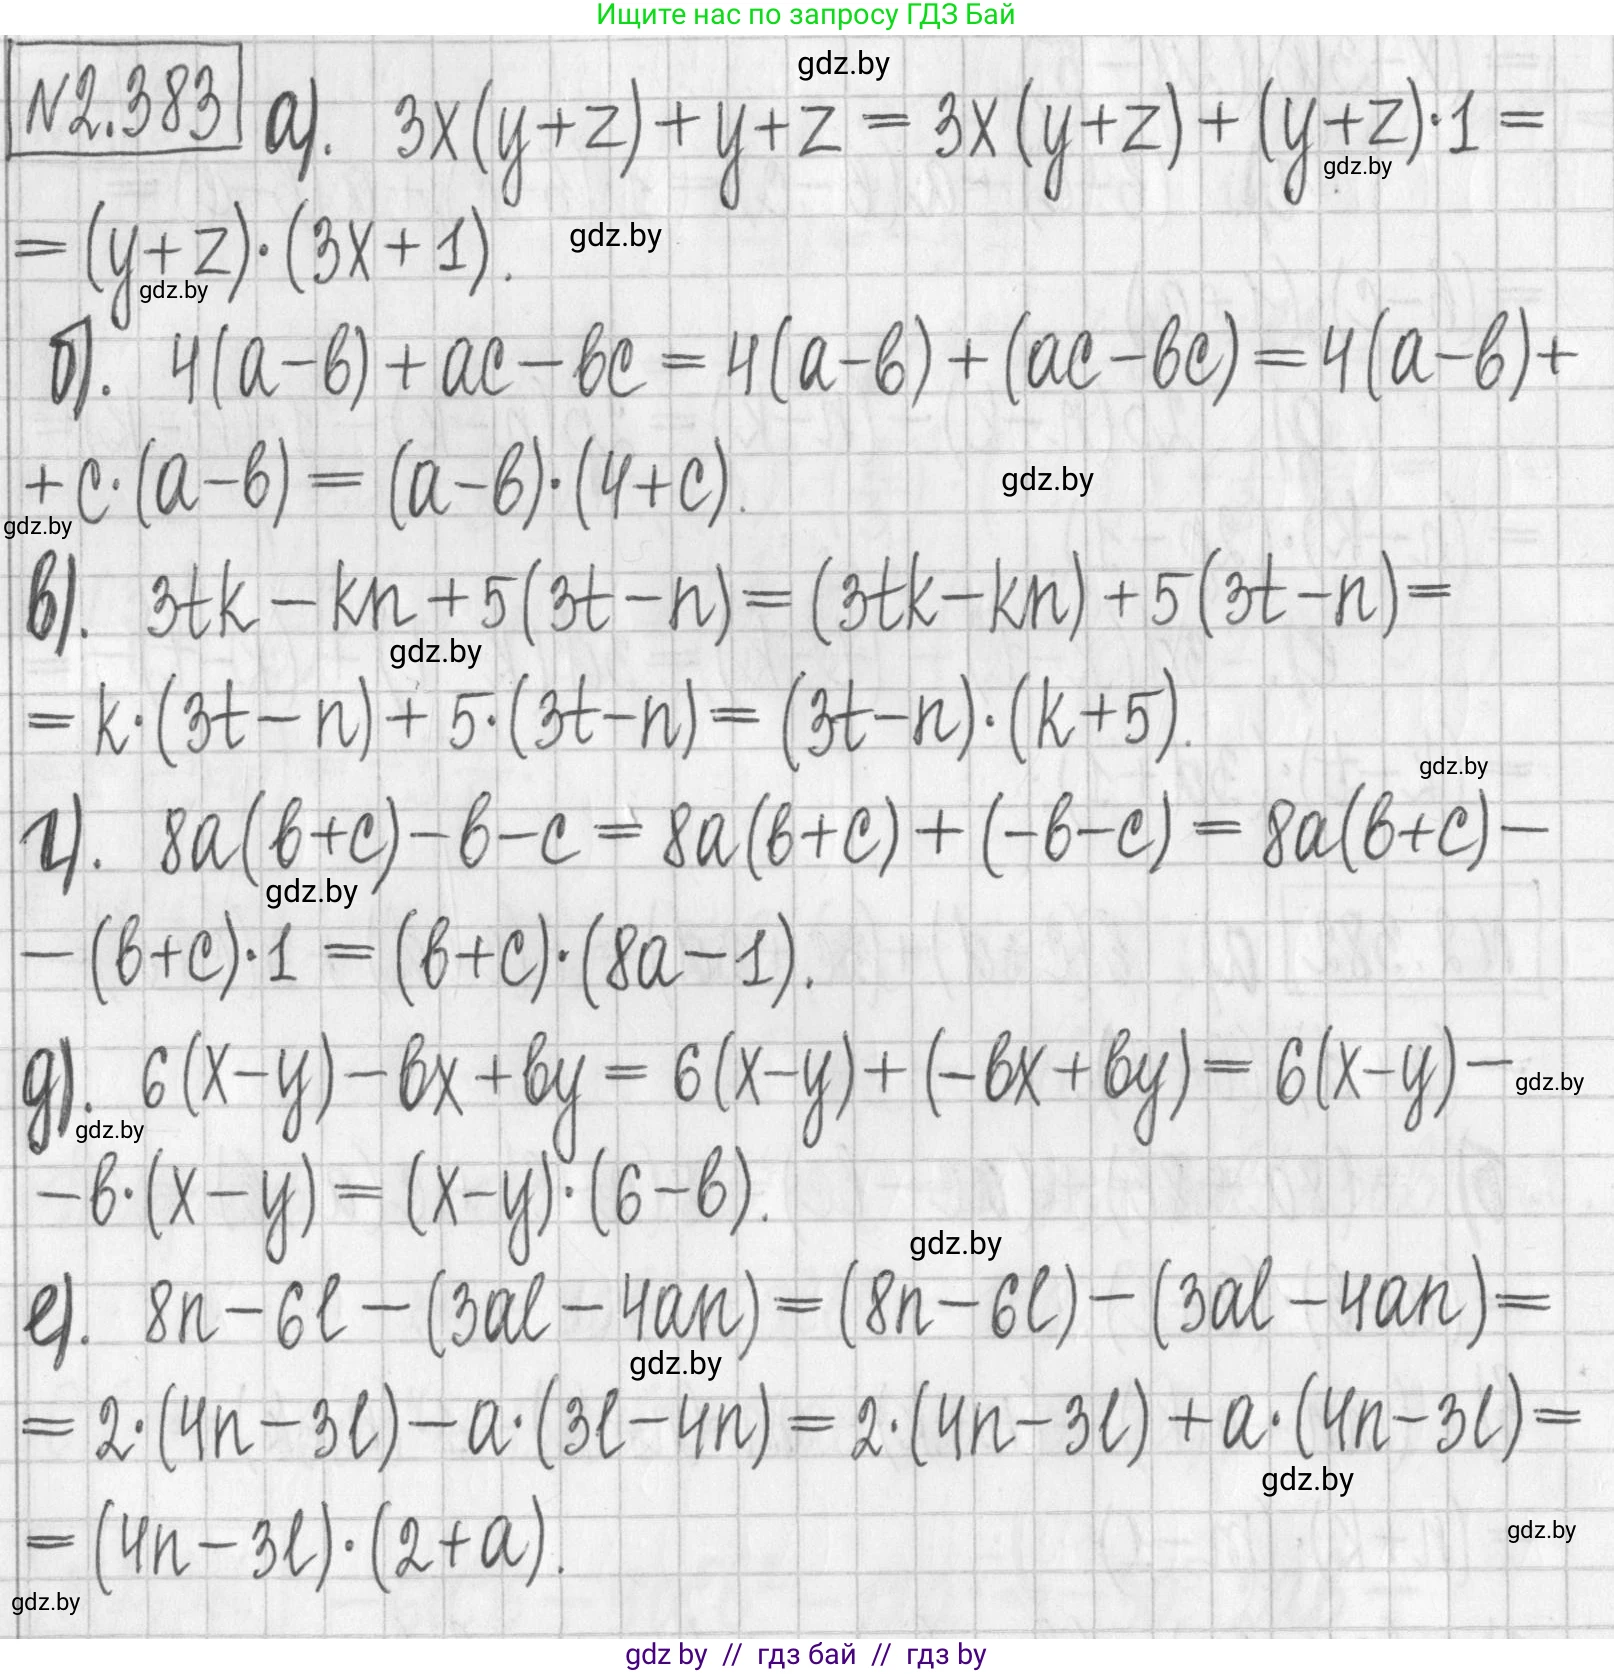 Ищите нас по запросу ГДЗ Бай
gdz.by
№2.383 а). 3x(y+z)+y+z=3x(y+z)+(y+z)·1=
gdz.by
=(y+z)·(3x+1).
gdz.by
gdz.by
б). 4(a-b)+ac-bc=4(a-b)+(ac-bc)=4(a-b)+
+c·(a-b)=(a-b)·(4+c).
gdz.by
gdz.by
в). 3tk-kn+5(3t-n)=(3tk-kn)+5(3t-n)=
gdz.by
=k·(3t-n)+5·(3t-n)=(3t-n)·(k+5).
gdz.by
г). 8a(b+c)-b-c=8a(b+c)+(-b-c)=8a(b+c)-
gdz.by
-(b+c)·1=(b+c)·(8a-1).
д). 6(x-y)-bx+by=6(x-y)+(-bx+by)=6(x-y)-
gdz.by
gdz.by
-b·(x-y)=(x-y)·(6-b).
gdz.by
е). 8n-6l-(3al-4an)=(8n-6l)-(3al-4an)=
gdz.by
=2·(4n-3l)-a·(3l-4n)=2·(4n-3l)+a·(4n-3l)=
gdz.by
=(4n-3l)·(2+a).
gdz.by
gdz.by
gdz by // гдз бай // гдз by